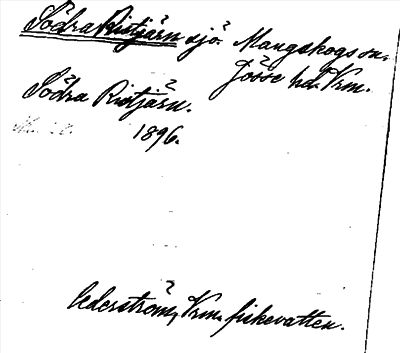 Södra Ristjärn sjö. Mangskogs sn.
Jösse hd. Vrm.
Södra Ristjärn.
1896.
Cederström, Vrm. fiskevatten.